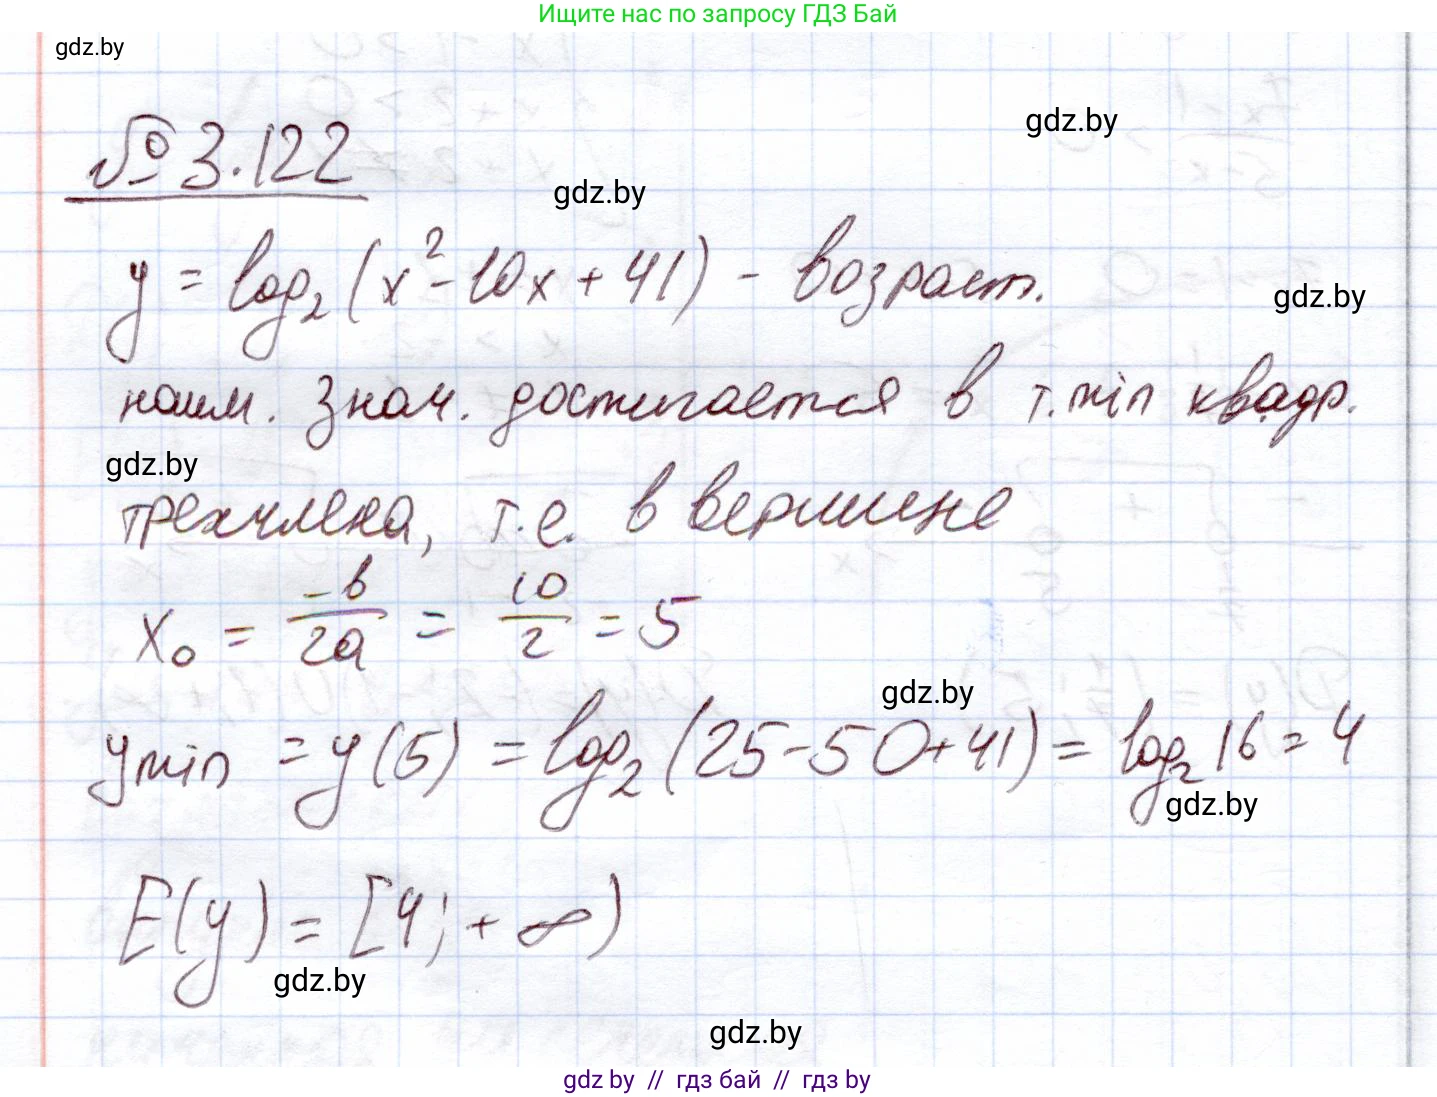 Ищите нас по запросу ГДЗ Бай
gdz.by
gdz.by
№ 3.122
gdz.by
y = log₂(x² - 10x + 41) - возраст.
gdz.by
наим. знач. достигается в т. min квадр.
gdz.by
трехчлена, т.е. в вершине
x₀ = -b/2a = 10/2 = 5
gdz.by
y min = y(5) = log₂(25 - 50 + 41) = log₂ 16 = 4
gdz.by
E(y) = [4; + ∞)
gdz.by
gdz.by
gdz by // гдз бай // гдз by